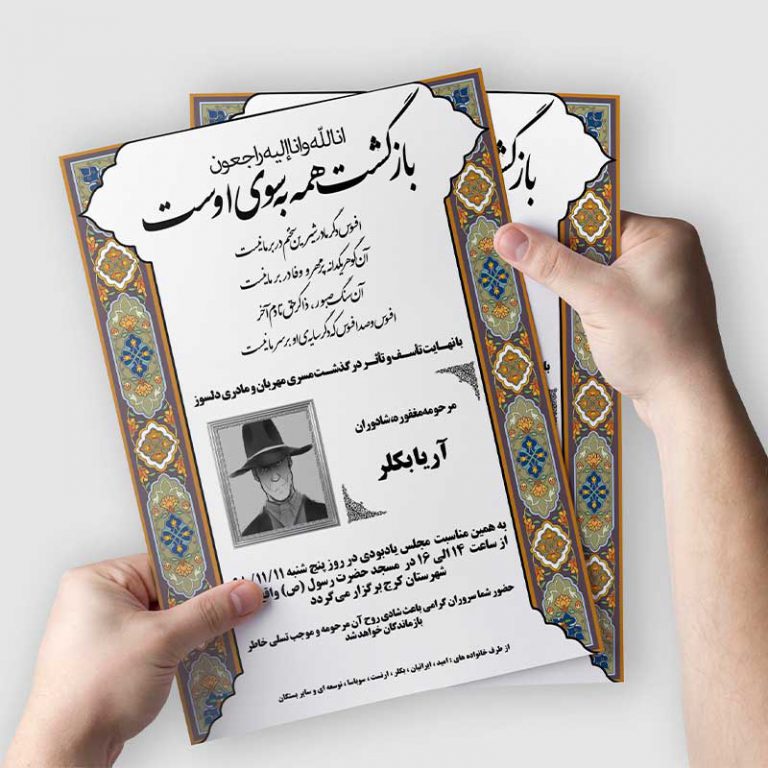 انا لله وانا إلیه راجعون
بازگشت همه به سوی اوست
افسوس دگر مادر شیرین سخنم در بر ما نیست
آن گوهر یکدانه پر مهر و وفا در بر ما نیست
آن سنگ صبور، ذاکر حق تا دم آخر
افسوس و صد افسوس که دگر سایه ی او بر سر ما نیست
با نهایت تأسف و تأثر درگذشت مسری مهربان و مادری دلسوز
مرحومه مغفوره، شادوران
آریا بکلر
به همین مناسبت مجلس یادبودی در روز پنج شنبه ۱۱/۱۱/
از ساعت ۱۴ الی ۱۶ در مسجد حضرت رسول (ص)
شهرستان کرج برگزار می گردد
حضور شما سروران گرامی باعث شادی روح آن مرحومه و موجب تسلی خاطر
بازماندگان خواهد شد
از طرف خانواده های : امید، ایرانیان، بکلر، ارنست، سوباسا، توسعه ای و سایر بستگان
بازگ